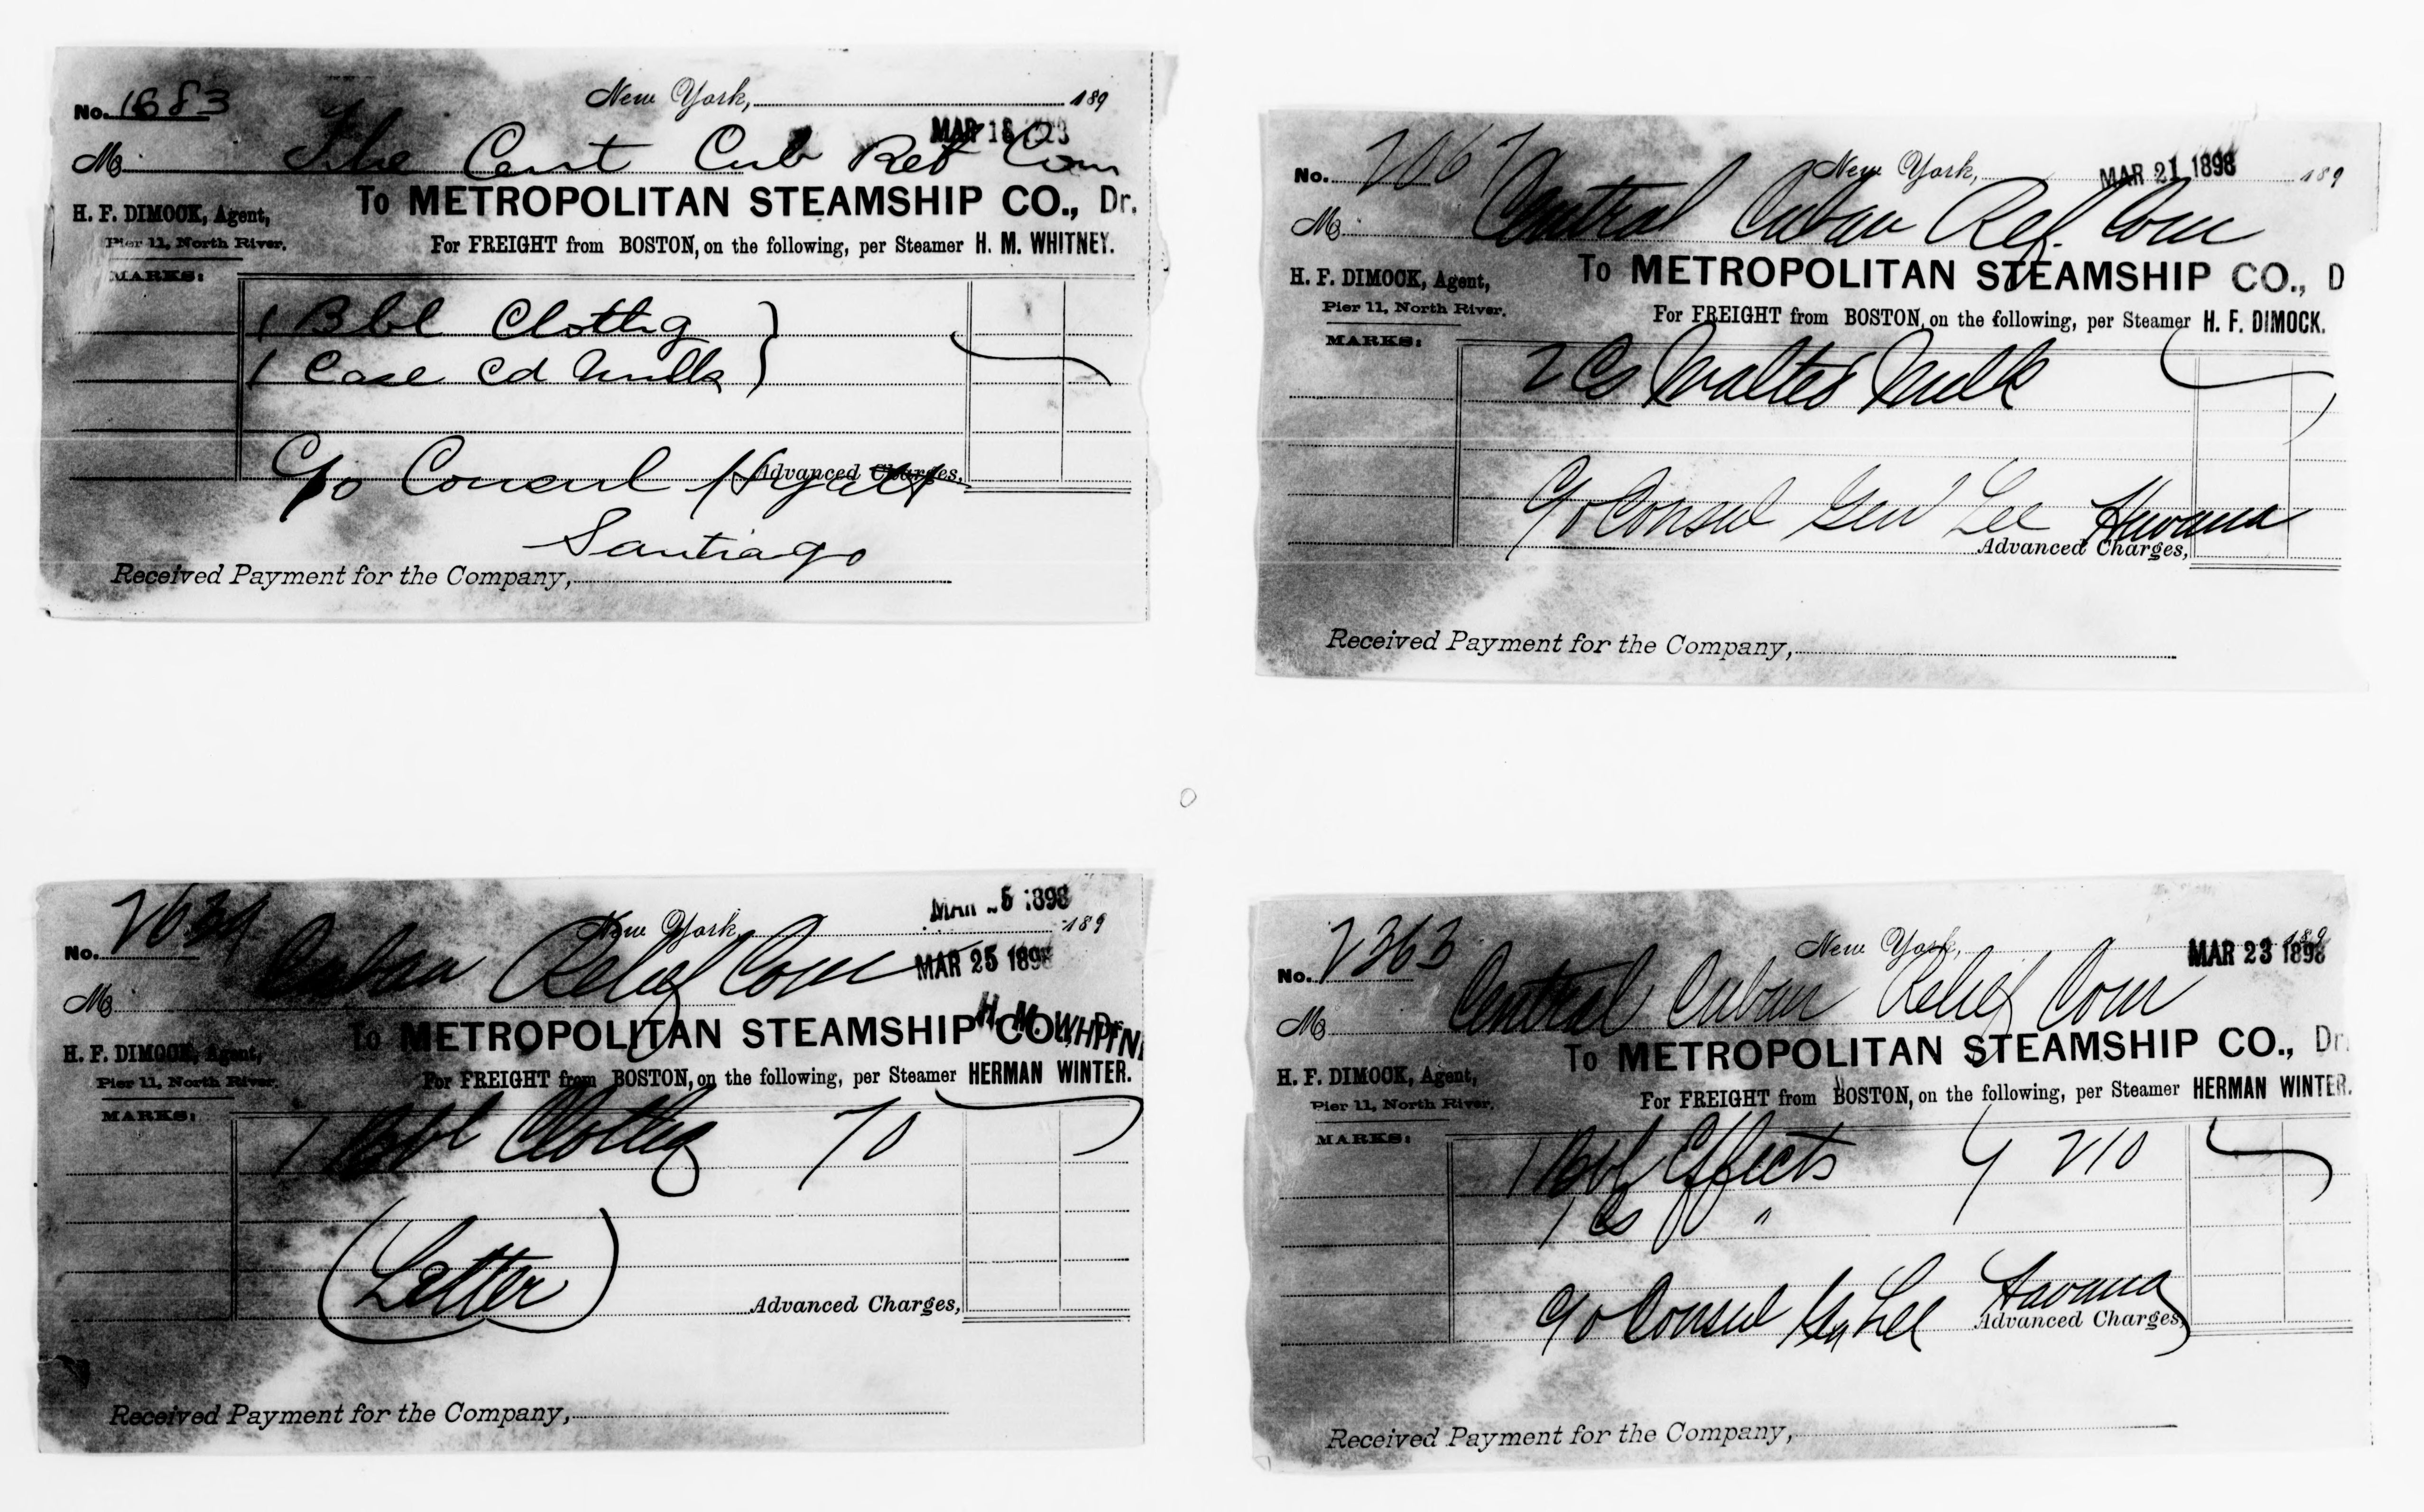 No. 1683
New York, 189
MAR 18
M The Cent Cub Rel Com
To METROPOLITAN STEAMSHIP CO., Dr.
H. F. DIMOCK, Agent,
Pier 11, North River.
For FREIGHT from BOSTON, on the following, per Steamer H. M. WHITNEY.
MARKS:
1 Bbl Clothg
1 Case Cd Milk
Advanced Charges,
C/o Consul Hyatt
Santiago
Received Payment for the Company,
No. 2067
New York, MAR 21 1898 189
M Central Cuban Ref. Com
To METROPOLITAN STEAMSHIP CO., D
H. F. DIMOCK, Agent,
Pier 11, North River.
For FREIGHT from BOSTON, on the following, per Steamer H. F. DIMOCK.
MARKS:
2 Cs Malted Milk
C/o Consul Genl Lee Havana
Advanced Charges,
Received Payment for the Company,
MAR 25 1898
No. 2634
New York, 189
M Cuban Relief Com
MAR 25 1898
To METROPOLITAN STEAMSHIP CO., Dr.
H. M. WHITN
H. F. DIMOCK, Agent,
Pier 11, North River.
For FREIGHT from BOSTON, on the following, per Steamer HERMAN WINTER.
MARKS:
1 Bbl Clothg 70
(Letter)
Advanced Charges,
Received Payment for the Company,
No. 2363
New York, 189
MAR 23 1898
M Central Cuban Relief Com
To METROPOLITAN STEAMSHIP CO., Dr.
H. F. DIMOCK, Agent,
Pier 11, North River.
For FREIGHT from BOSTON, on the following, per Steamer HERMAN WINTER.
MARKS:
1 Bbl Effects 210
1 Cs "
C/o Consul Gen Lee Havana
Advanced Charges,
Received Payment for the Company,